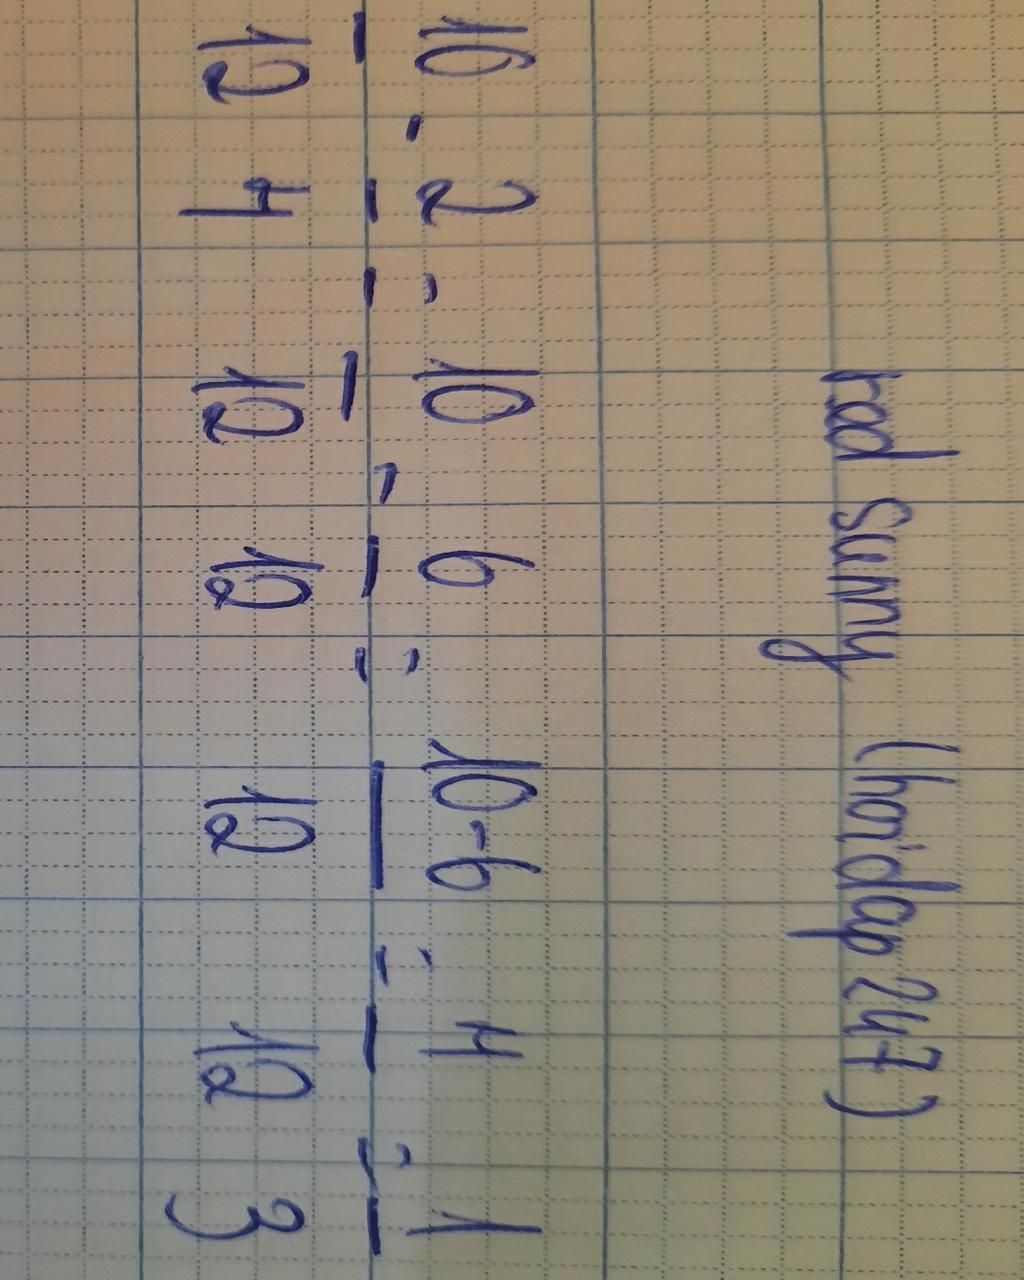 rad sunny (hoidap247)
10/12 - 2/4 = 10/12 - 6/12 = 10-6/12 = 4/12 = 1/3